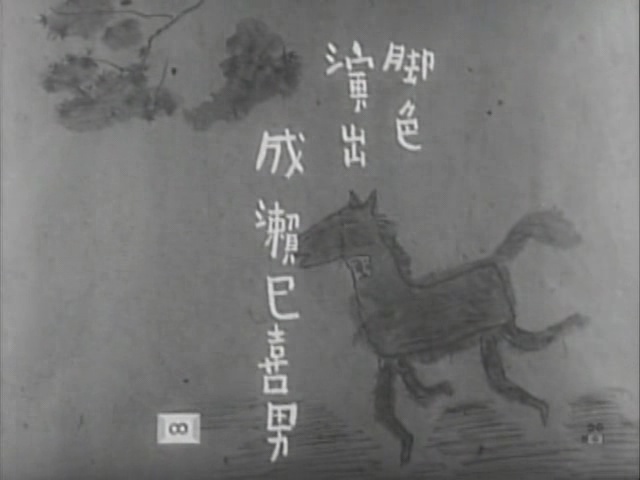 脚色
演出
成瀬巳喜男
∞